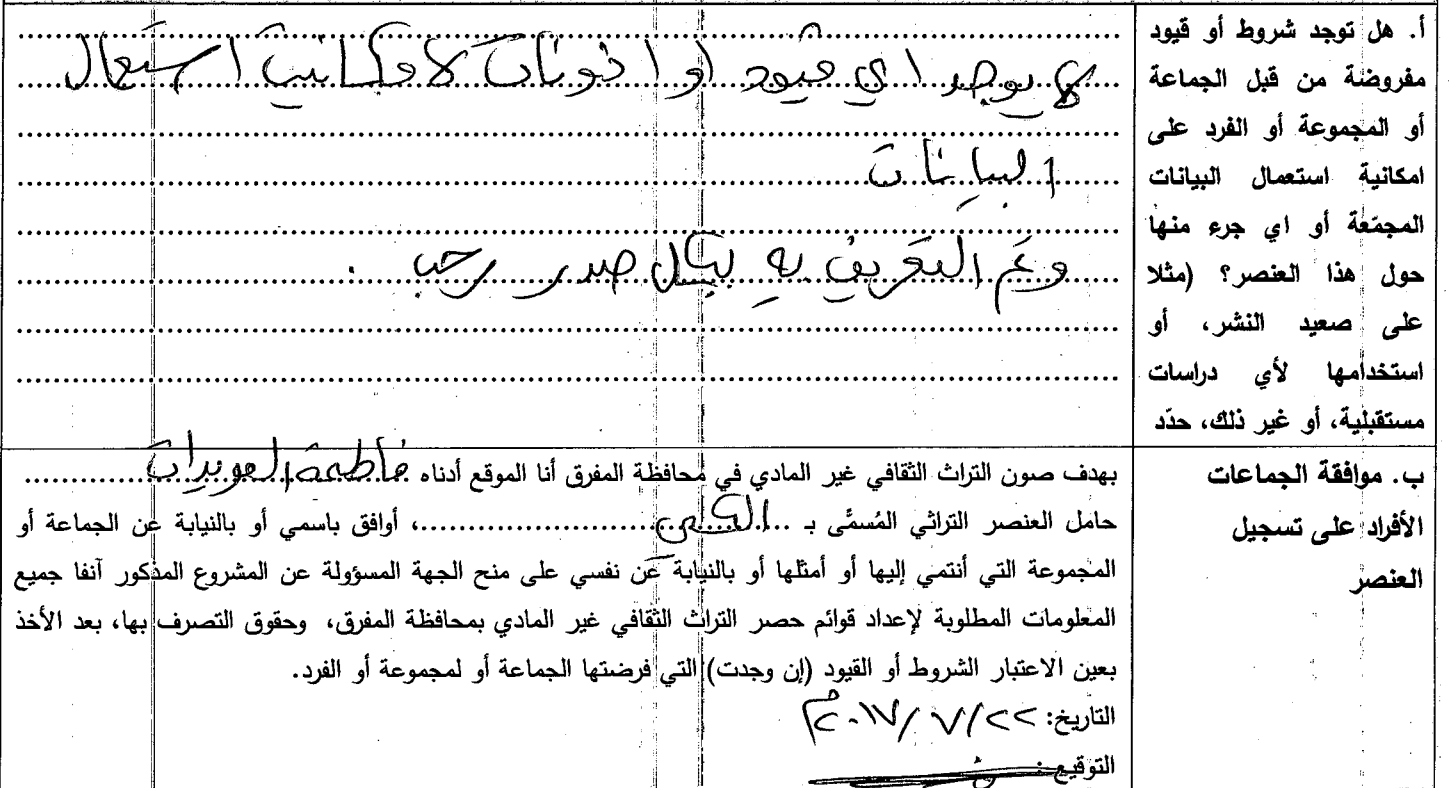 أ. هل توجد شروط أو قيود
مفروضة من قبل الجماعة
أو المجموعة أو الفرد على
امكانية استعمال البيانات
المجمّعة أو اي جرء منها
حول هذا العنصر؟ (مثلا
على صعيد النشر، أو
استخدامها لأي دراسات
مستقبلية، أو غير ذلك، حدّد
لا يوجد اي قيود او اذونات لامكانيت استعمال
البيانات
وتم التعريف به بكل صدر رحب .
ب. موافقة الجماعات
الأفراد على تسجيل
العنصر
بهدف صون التراث الثقافي غير المادي في محافظة المفرق أنا الموقع أدناه فاطمة العويدات
حامل العنصر التراثي المُسمَّى بـ ...، أوافق باسمي أو بالنيابة عن الجماعة أو
المجموعة التي أنتمي إليها أو أمثلها أو بالنيابة عن نفسي على منح الجهة المسؤولة عن المشروع المذكور آنفا جميع
المعلومات المطلوبة لإعداد قوائم حصر التراث الثقافي غير المادي بمحافظة المفرق، وحقوق التصرف بها، بعد الأخذ
بعين الاعتبار الشروط أو القيود (إن وجدت) التي فرضتها الجماعة أو لمجموعة أو الفرد.
التاريخ: ٢٢/ ٧/ ٢٠١٧م
التوقيع: